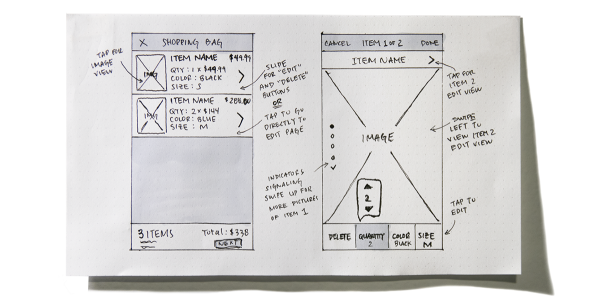 X SHOPPING BAG
TAP FOR
IMAGE
VIEW
IMG
ITEM NAME $49.99
QTY: 1 x $49.99
COLOR: BLACK
SIZE: S
IMG
ITEM NAME
QTY: 2 x $144
COLOR: BLUE
SIZE: M
3 ITEMS Total: $338
NEXT
SLIDE
FOR "EDIT"
AND "DELETE"
BUTTONS
OR
TAP TO GO
DIRECTLY TO
EDIT PAGE
INDICATORS
SIGNALING
SWIPE UP FOR
MORE PICTURES
OF ITEM 1
CANCEL ITEM 1 OF 2 DONE
ITEM NAME
IMAGE
2
DELETE QUANTITY COLOR SIZE
2 BLACK M
TAP FOR
ITEM 2
EDIT VIEW
SWIPE
LEFT TO
VIEW ITEM 2
EDIT VIEW
TAP TO
EDIT